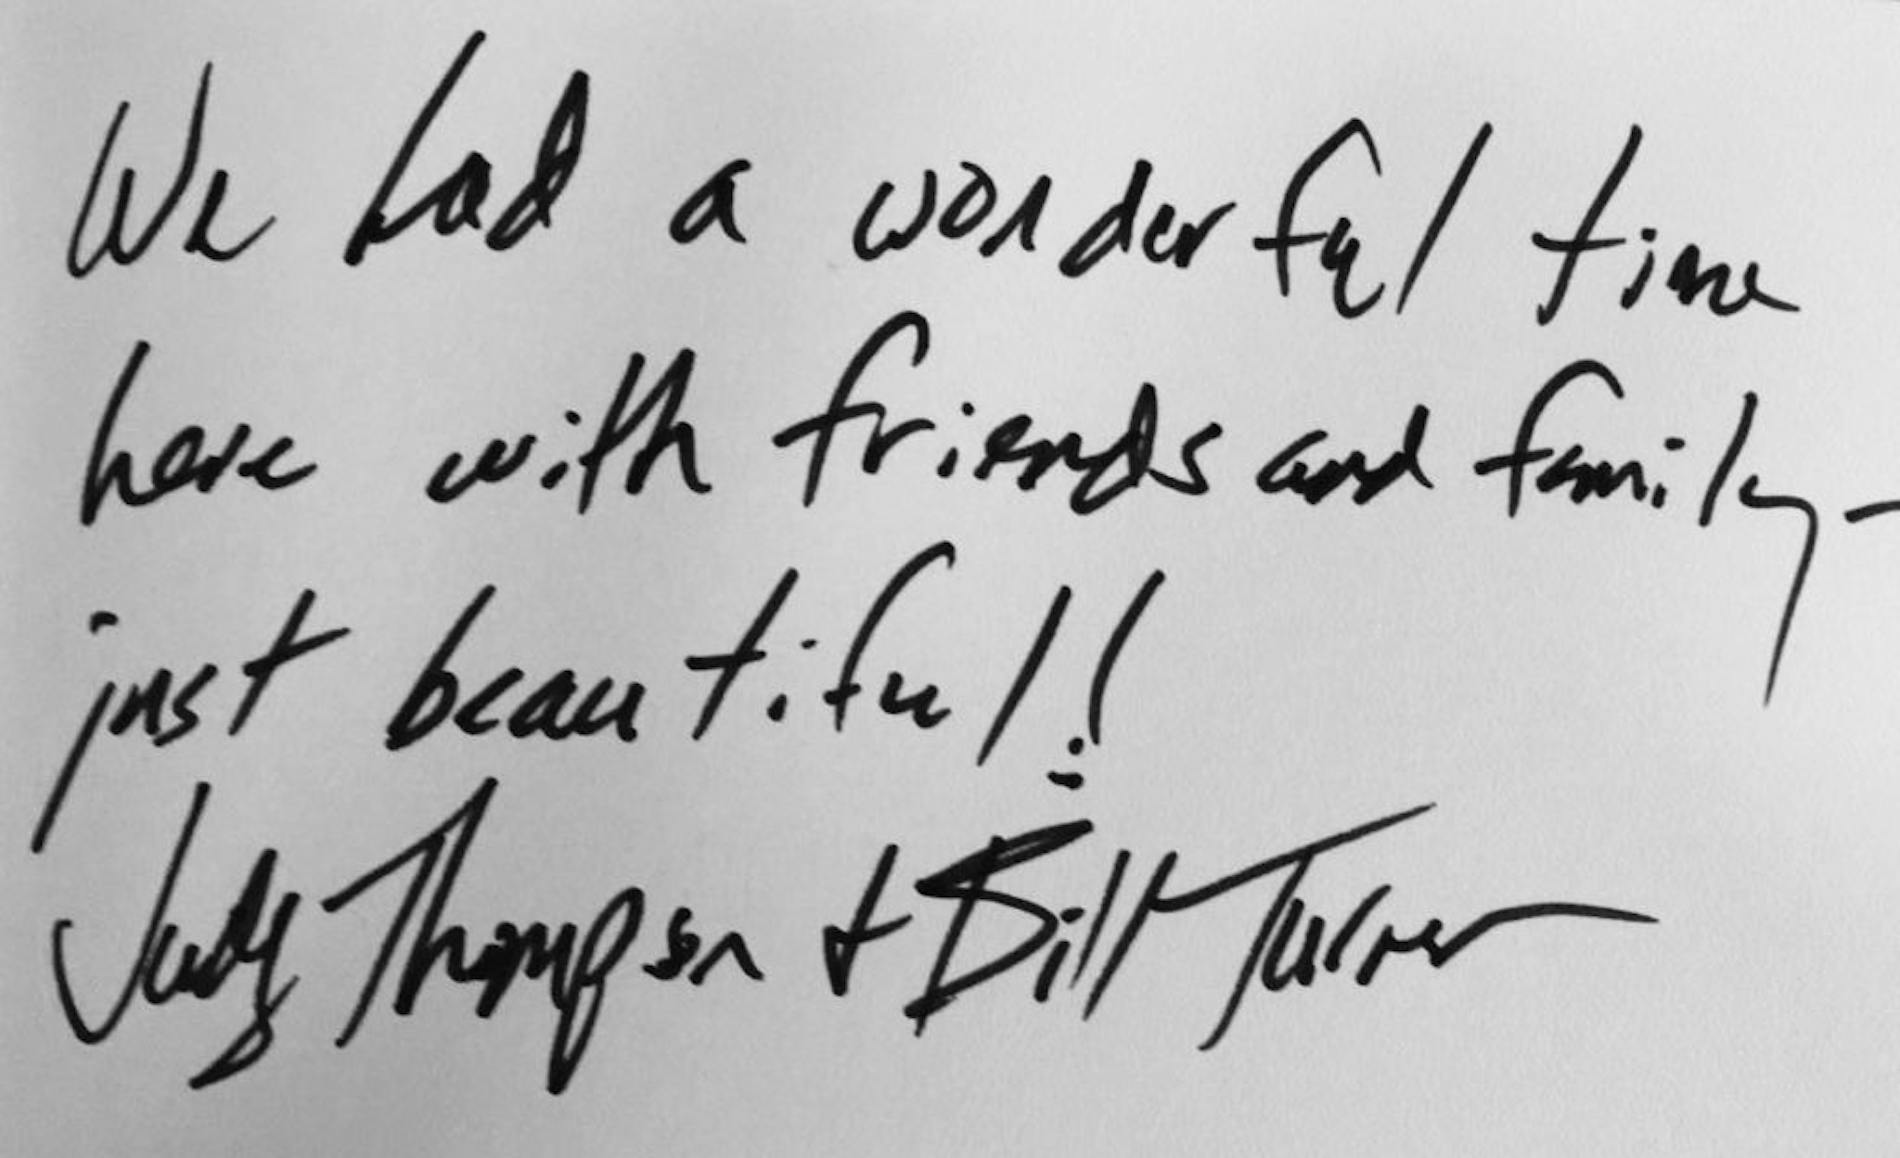 We had a wonderful time
here with friends and family -
just beautiful!
Judy Thompson + Bill Turner